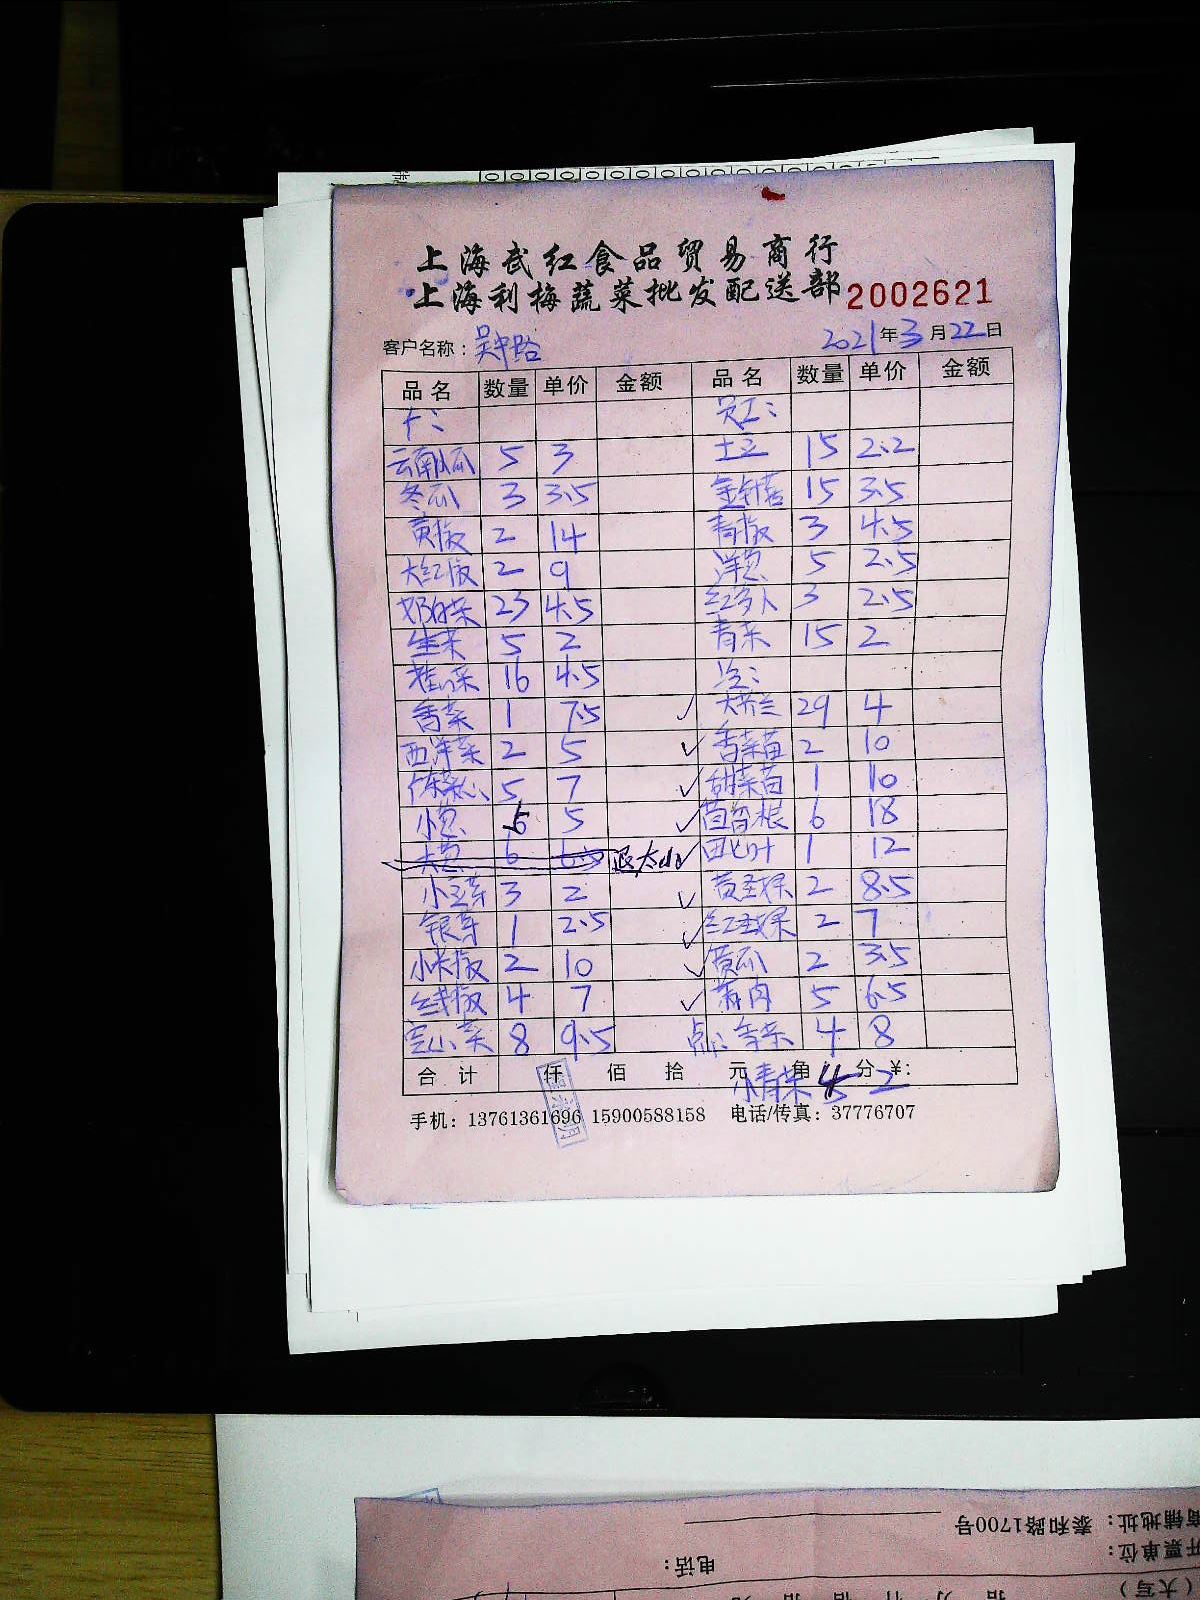 上海武红食品贸易商行
上海利梅蔬菜批发配送部 2002621
客户名称：吴中路 2021年3月22日
品名 数量 单价 金额 品名 数量 单价 金额
员工：
云南小瓜 5 3 土豆 15 2.2
冬瓜 3 3.5 金针菇 15 3.5
黄椒 2 14 青椒 3 4.5
大红椒 2 9 洋葱 5 2.5
奶白菜 23 4.5 红萝卜 3 2.5
生菜 5 2 青菜 15 2
16 4.5
香菜 1 7.5 大芥兰 29 4
西洋菜 2 5 香菜苗 2 10
广东菜心 5 7 甜菜苗 1 10
小葱 5 5 茴香根 6 18
大葱 6 6.5 退 太小 1 12
小豆芽 3 2 黄圣女果 2 8.5
银芽 1 2.5 红圣女果 2 7
小米椒 2 10 黄瓜 2 3.5
线椒 4 7 蒜肉 5 6.5
宝山菜 8 9.5 点： 4 8
合计 仟 佰 拾 元 角 分 ¥:
小青菜 4 2
手机：13761361696 15900588158 电话/传真：37776707
商铺地址：泰和路1700号
开票单位：
电话：
（大写）